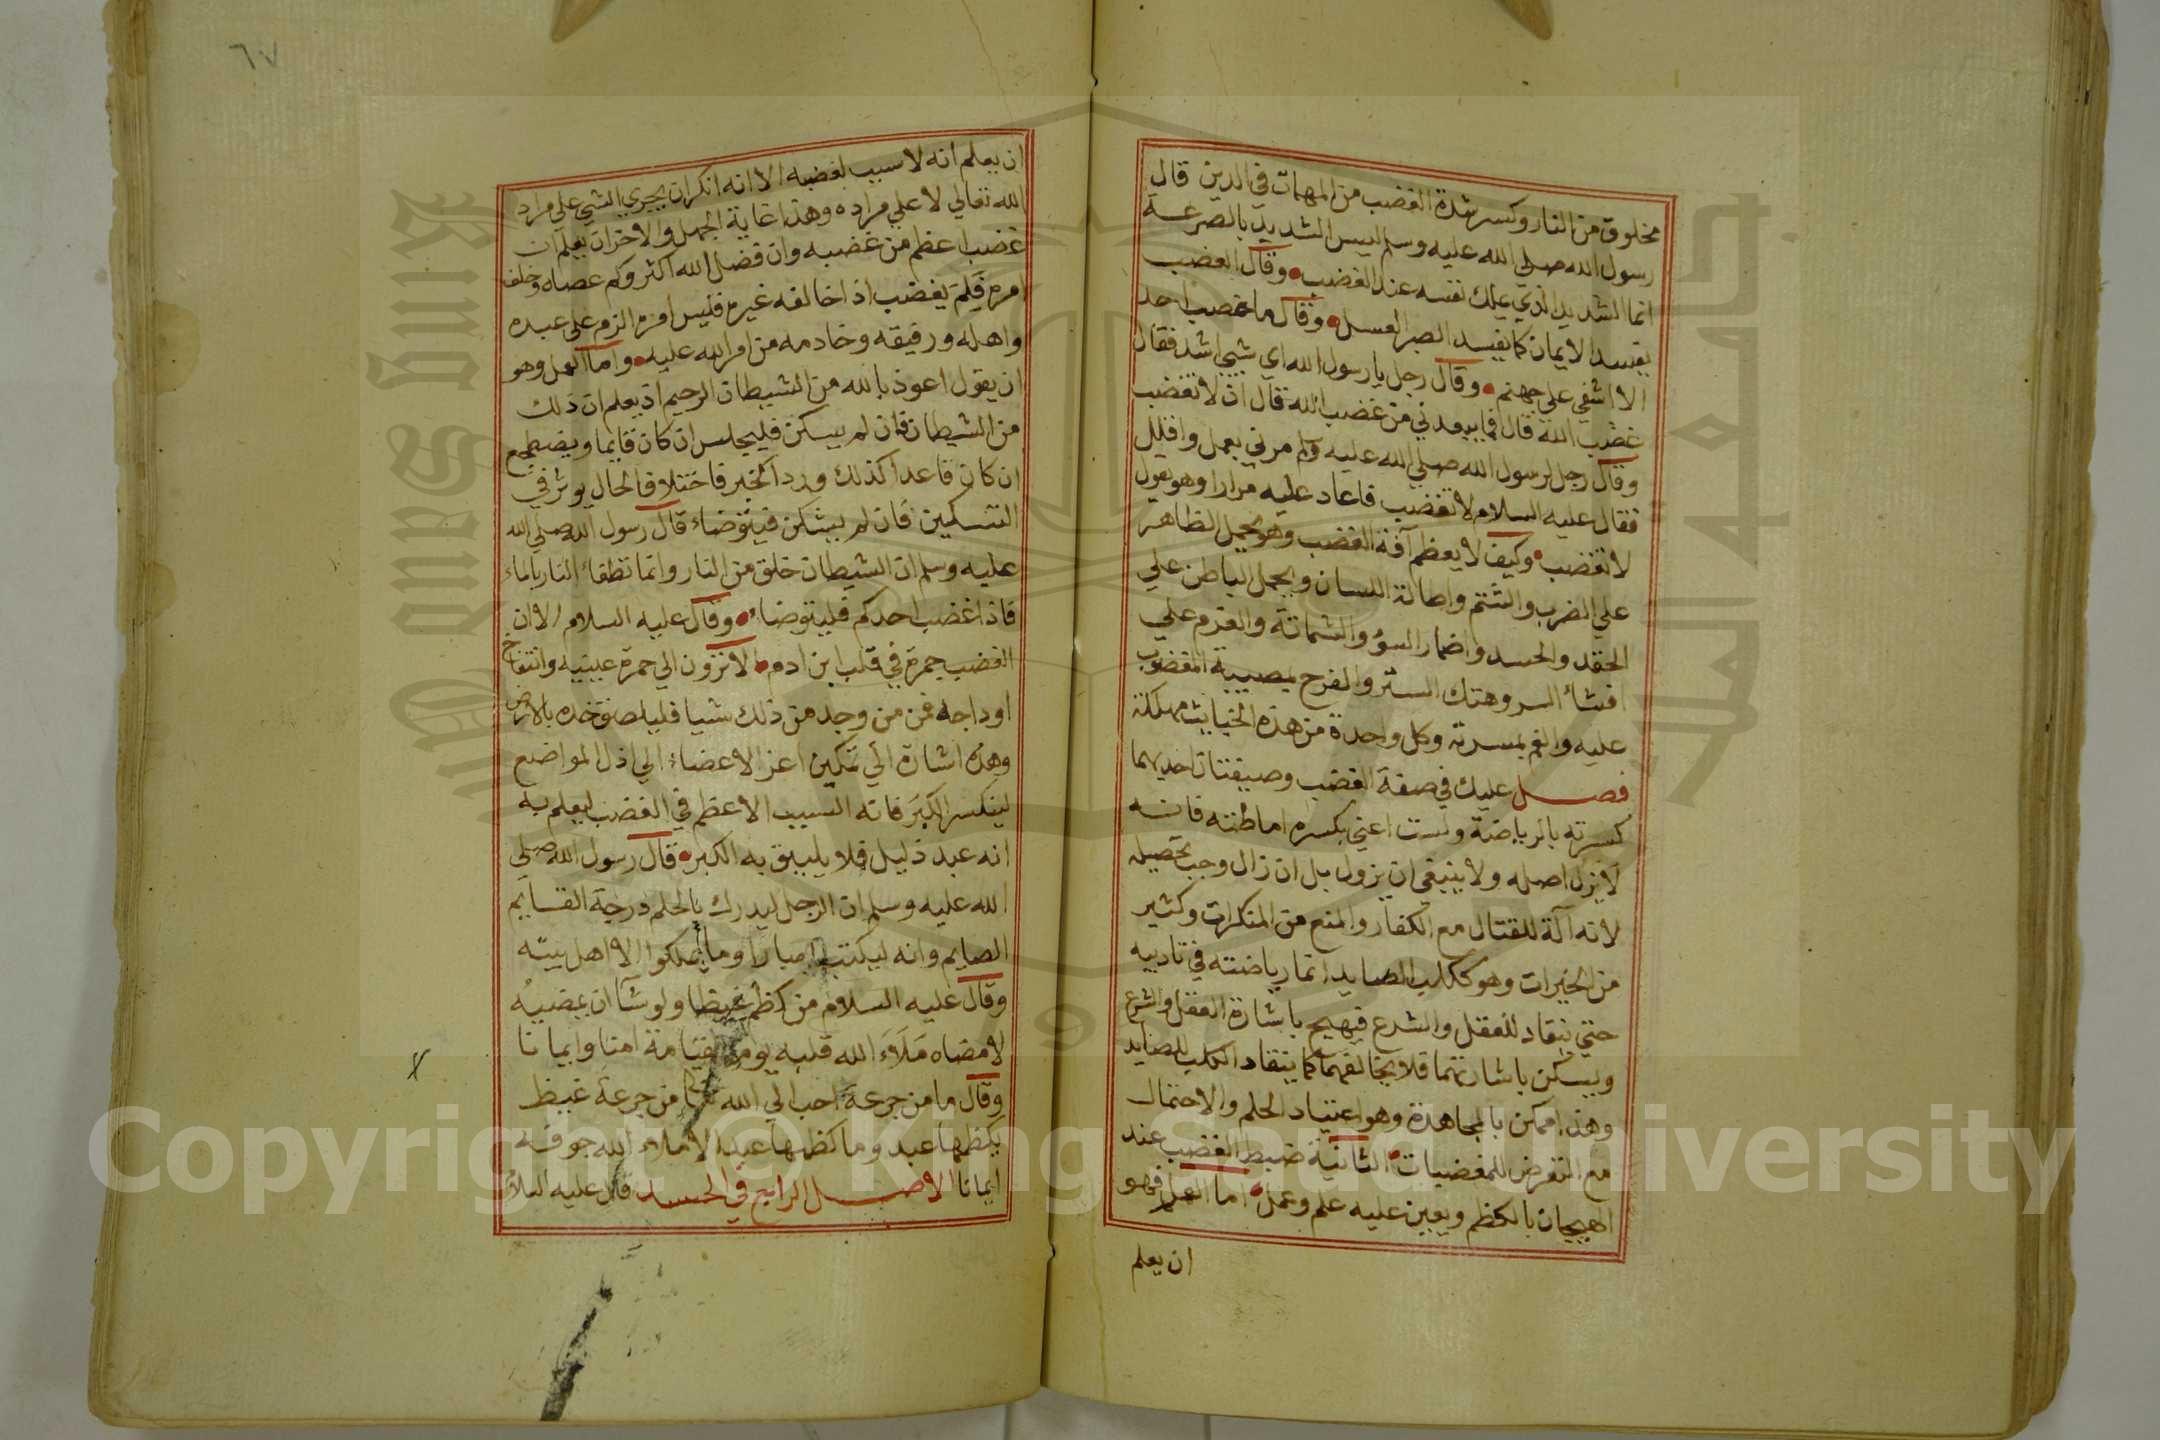 مخلوق من النار وكسر شدة الغضب من المهمات في الدين قال
رسول الله صلي الله عليه وسلم ليس الشديد بالصرعة
انما الشديد الذي يملك نفسه عند الغضب وقال الغضب
يفسد الايمان كما يفسد الصبر العسل وقال ما غضب احد
الا اشفي علي جهنم وقال رجل يا رسول الله اي شيي اشد فقال
غضب الله قال فما يبعدني من غضب الله قال ان لا تغضب
وقال رجل لرسول الله صلي الله عليه وسلم مرني بعمل واقلل
فقال عليه السلام لا تغضب فاعاد عليه مرارا وهو يقول
لا تغضب وكيف لا يعظم آفة الغضب وهو يحمل الظاهر
علي الضرب والشتم واطالة اللسان ويحمل الباطن علي
الحقد والحسد واضمار السوء والشماتة والعزم علي
افشاء السر وهتك الستر والفرح بمصيبة المغضوب
عليه والغم بمسرته وكل واحدة من هذه الخبايث مهلكة
فصل عليك في صفة الغضب وصيفتان احديهما
كسرته بالرياضة ولست اعني بكسره اماطته فانه
لا يزل اصله ولا ينبغي ان يزول بل ان زال وجب تحصيله
لانه آلة للقتال مع الكفار والمنع من المنكرات وكثير
من الخيرات وهو ككلب الصايد انما رياضته في تاديبه
حتي ينقاد للعقل والشرع فيهيج باشارة العقل والشرع
ويسكن باشارتهما فلا يخالفهما كما ينقاد الكلب للصايد
وهذا ممكن بالمجاهدة وهو اعتياد الحلم والاحتمال
مع التعرض للمغضبات الثانية ضبط الغضب عند
الهيجان بالكظم ويعين عليه علم وعمل اما العلم فهو
ان يعلم
٦٧
ان يعلم انه لا سبب لغضبه الا انه انكر ان يجري الشي علي مراد
الله تعالي لا علي مراده وهذا غاية الجهل والاخر ان يعلم ان
غضب اعظم من غضبه وان فضل الله اكثر وكم عصاه وخلف
امره فلم يغضب اذا خالفه غيره فليس امره الزم علي عبده
واهله ورفيقه وخادمه من امر الله عليه واما العمل وهو
ان يقول اعوذ بالله من الشيطان الرجيم اذ يعلم ان ذلك
من الشيطان فان لم يسكن فليجلس ان كان قايما ويضطجع
ان كان قاعدا كذلك ورد الخبر فاختلاف الحال يوثر في
التسكين فان لم يسكن فيتوضاء قال رسول الله صلي الله
عليه وسلم ان الشيطان خلق من النار وانما تطفاء النار بالماء
فاذا غضب احدكم فليتوضاء وقال عليه السلام الا ان
الغضب جمرة في قلب ابن ادم الا تزون الي حمرة عينيه وانتفاخ
اوداجه فمن وجد من ذلك شيا فليلصق خده بالارض
وهذه اشارة الي تمكين اعز الاعضاء الي اذل المواضع
لينكسر الكبر فانه السبب الاعظم في الغضب ليعلم به
انه عبد ذليل فلا يليق به الكبر قال رسول الله صلي
الله عليه وسلم ان الرجل ليدرك بالحلم درجة القايم
الصايم وانه ليكتب جبارا وما يملكوا الا اهل بيته
وقال عليه السلام من كظم غيظا ولو شآ ان يمضيه
لامضاه ملاء الله قلبه يوم القيامة امنا وايمانا
وقال ما من جرعة احب الي الله من جرعة غيظ
يكظمها عبد وما كظمها عبد الا ملاء الله جوفه
ايمانا الاصل الرابع في الحسد قال عليه السلام
Copyright © King Saud University